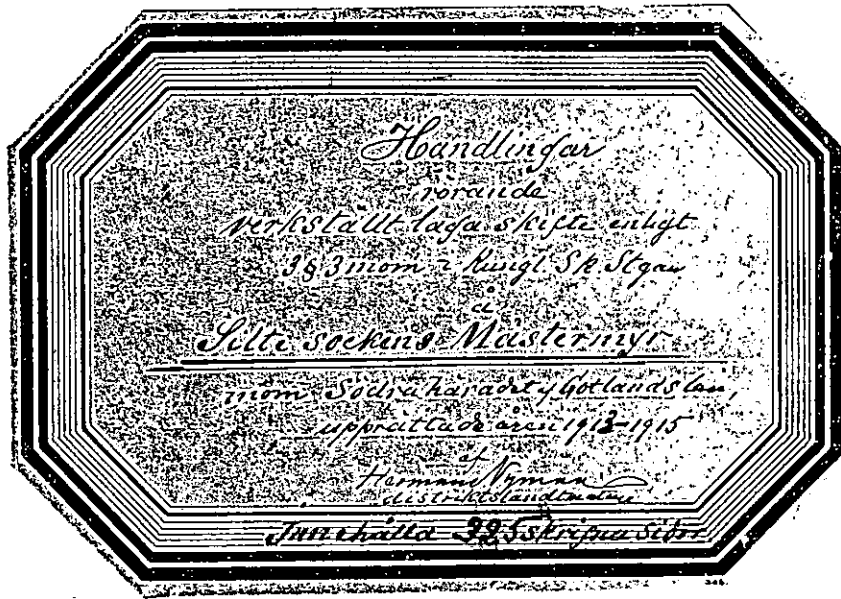 Handlingar
rörande
verkställt laga skifte enligt
3 § 3 mom i Kungl. Sk. Stgan
å
Silte sockens Mästermyr
inom Södra häradet af Gotlands län,
upprättade åren 1913-1915
af
Herman Nyman
distriktslandtmätare
Innehålla 225 skrifna sidor